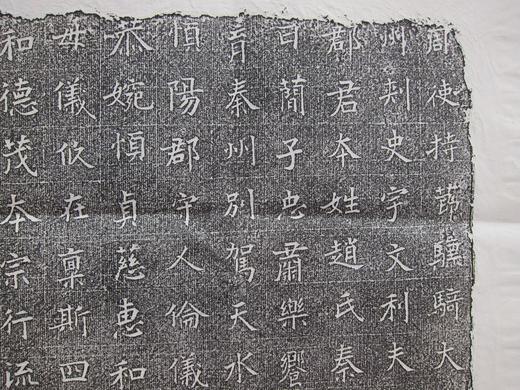 周使持節驃騎大
州刺史宇文利夫
郡君本姓趙氏秦
曰蕳子忠肅樂響
青秦州別駕天水
恒陽郡守人倫儀
恭婉慎貞慈惠和
母儀攸在稟斯四
和德茂本宗行流